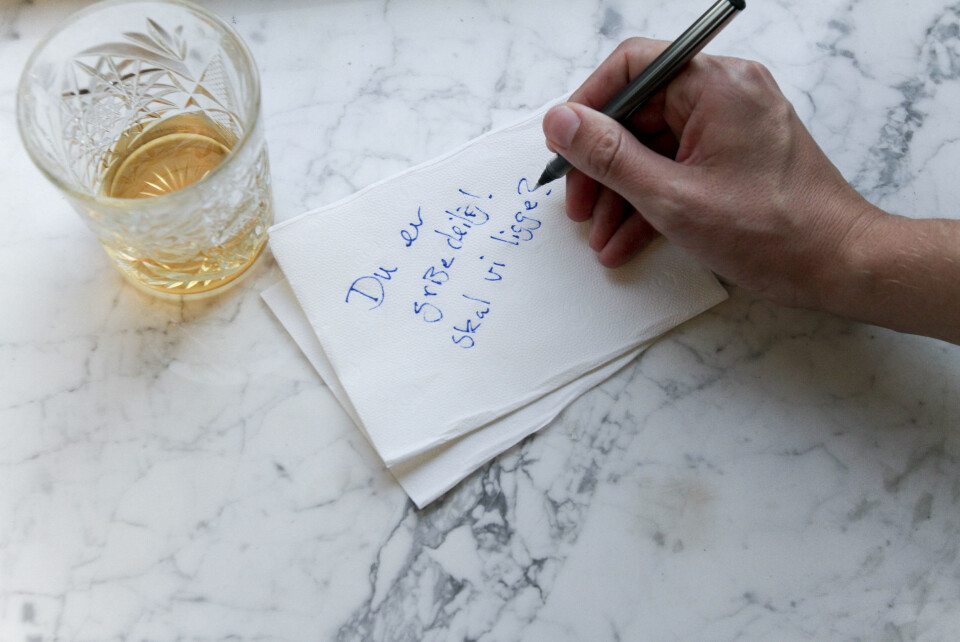 Du er
griBedeilig!
skal vi ligge?